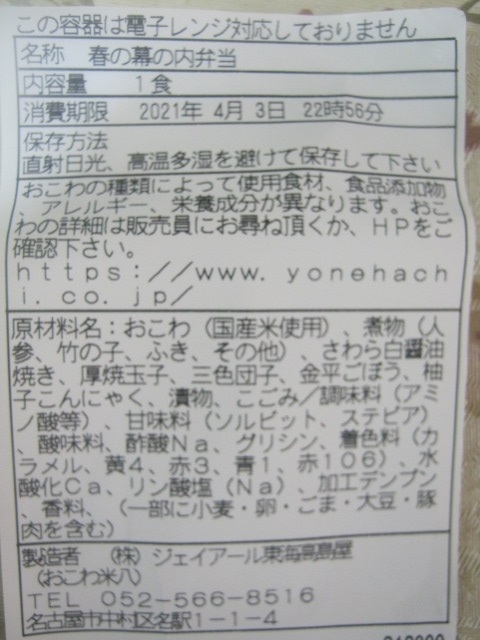 この容器は電子レンジ対応しておりません
名称　春の幕の内弁当
内容量　１食
消費期限　2021年 4月 3日 22時56分
保存方法
直射日光、高温多湿を避けて保存して下さい
おこわの種類によって使用食材、食品添加物
、アレルギー、栄養成分が異なります。おこ
わの詳細は販売員にお尋ね頂くか、ＨＰをご
確認下さい。
ｈｔｔｐｓ：／／ｗｗｗ．ｙｏｎｅｈａｃｈ
ｉ．ｃｏ．ｊｐ／
原材料名：おこわ（国産米使用）、煮物（人
参、竹の子、ふき、その他）、さわら白醤油
焼き、厚焼玉子、三色団子、金平ごぼう、柚
子こんにゃく、漬物、こごみ／調味料（アミ
ノ酸等）、甘味料（ソルビット、ステビア）
、酸味料、酢酸Ｎａ、グリシン、着色料（カ
ラメル、黄４、赤３、青１、赤１０６）、水
酸化Ｃａ、リン酸塩（Ｎａ）、加工デンプン
、香料、（一部に小麦・卵・ごま・大豆・豚
肉を含む）
製造者　（株）ジェイアール東海高島屋
（おこわ米八）
ＴＥＬ　０５２－５６６－８５１６
名古屋市中村区名駅１－１－４